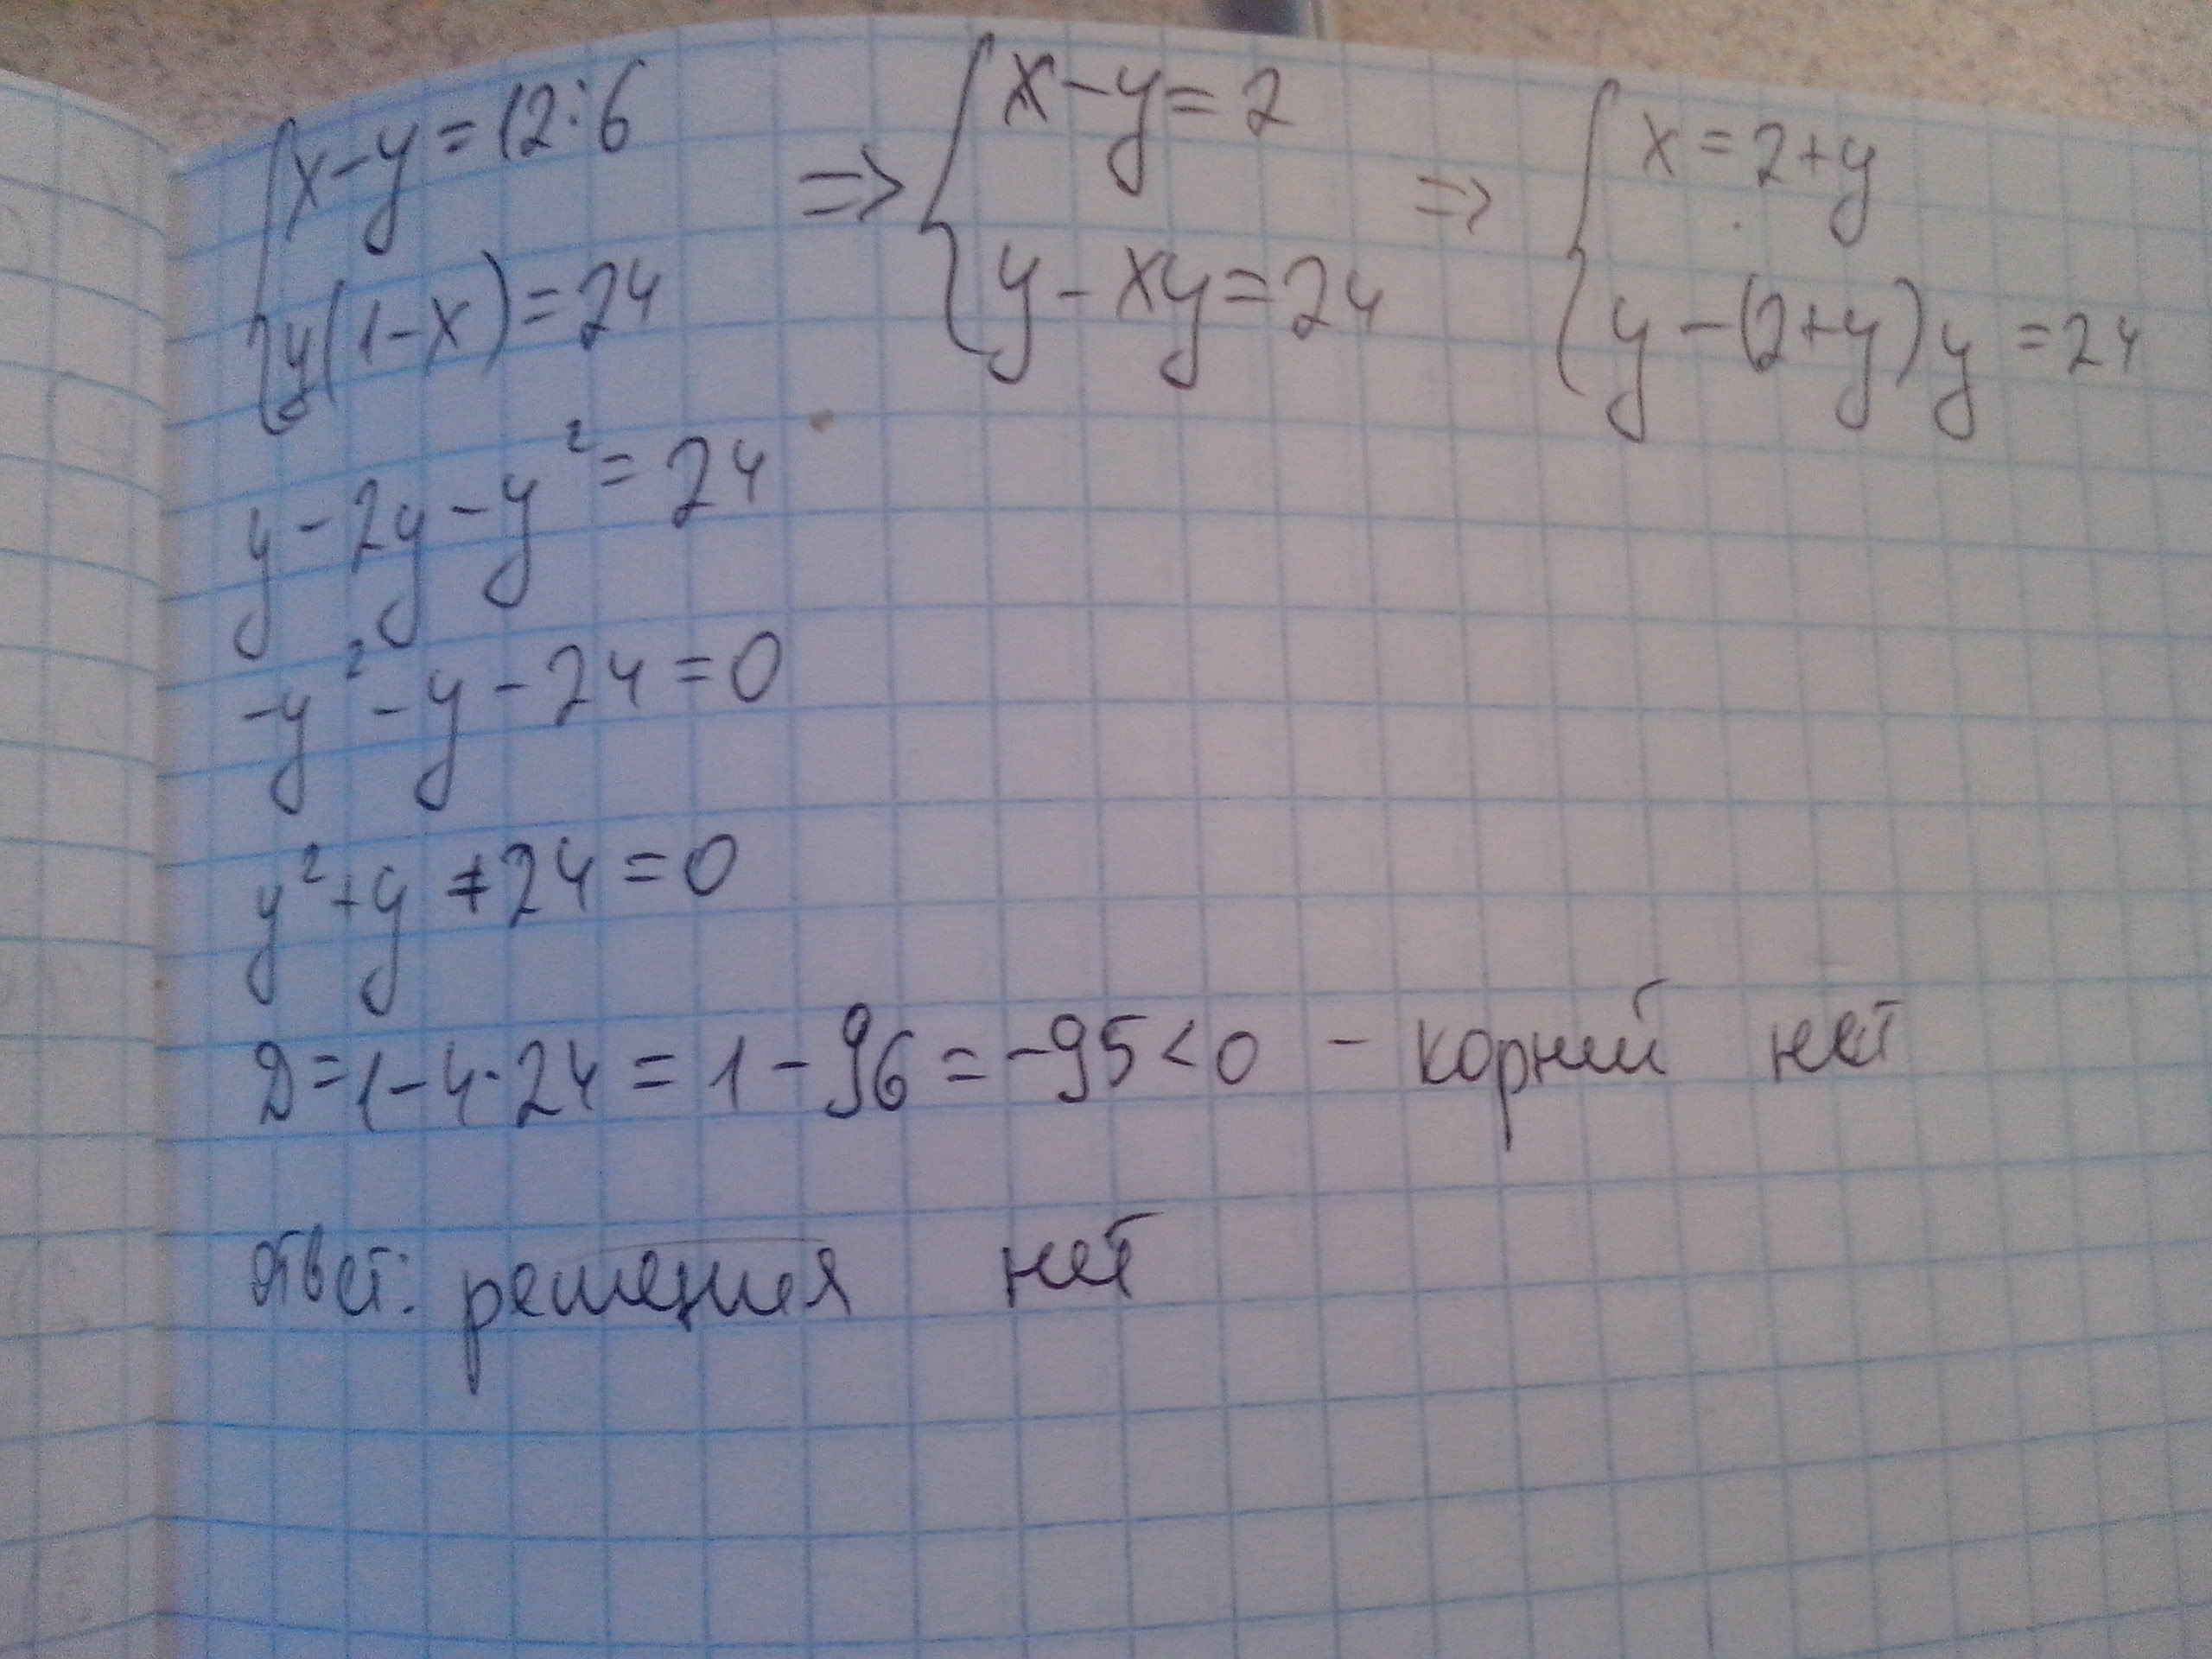 {x-y=12:6 => {x-y=2 => {x=2+y
{y(1-x)=24 {y-xy=24 {y-(2+y)y=24
y-2y-y²=24
-y²-y-24=0
y²+y+24=0
D=1-4·24=1-96=-95<0 - корний нет
ответ: решения нет